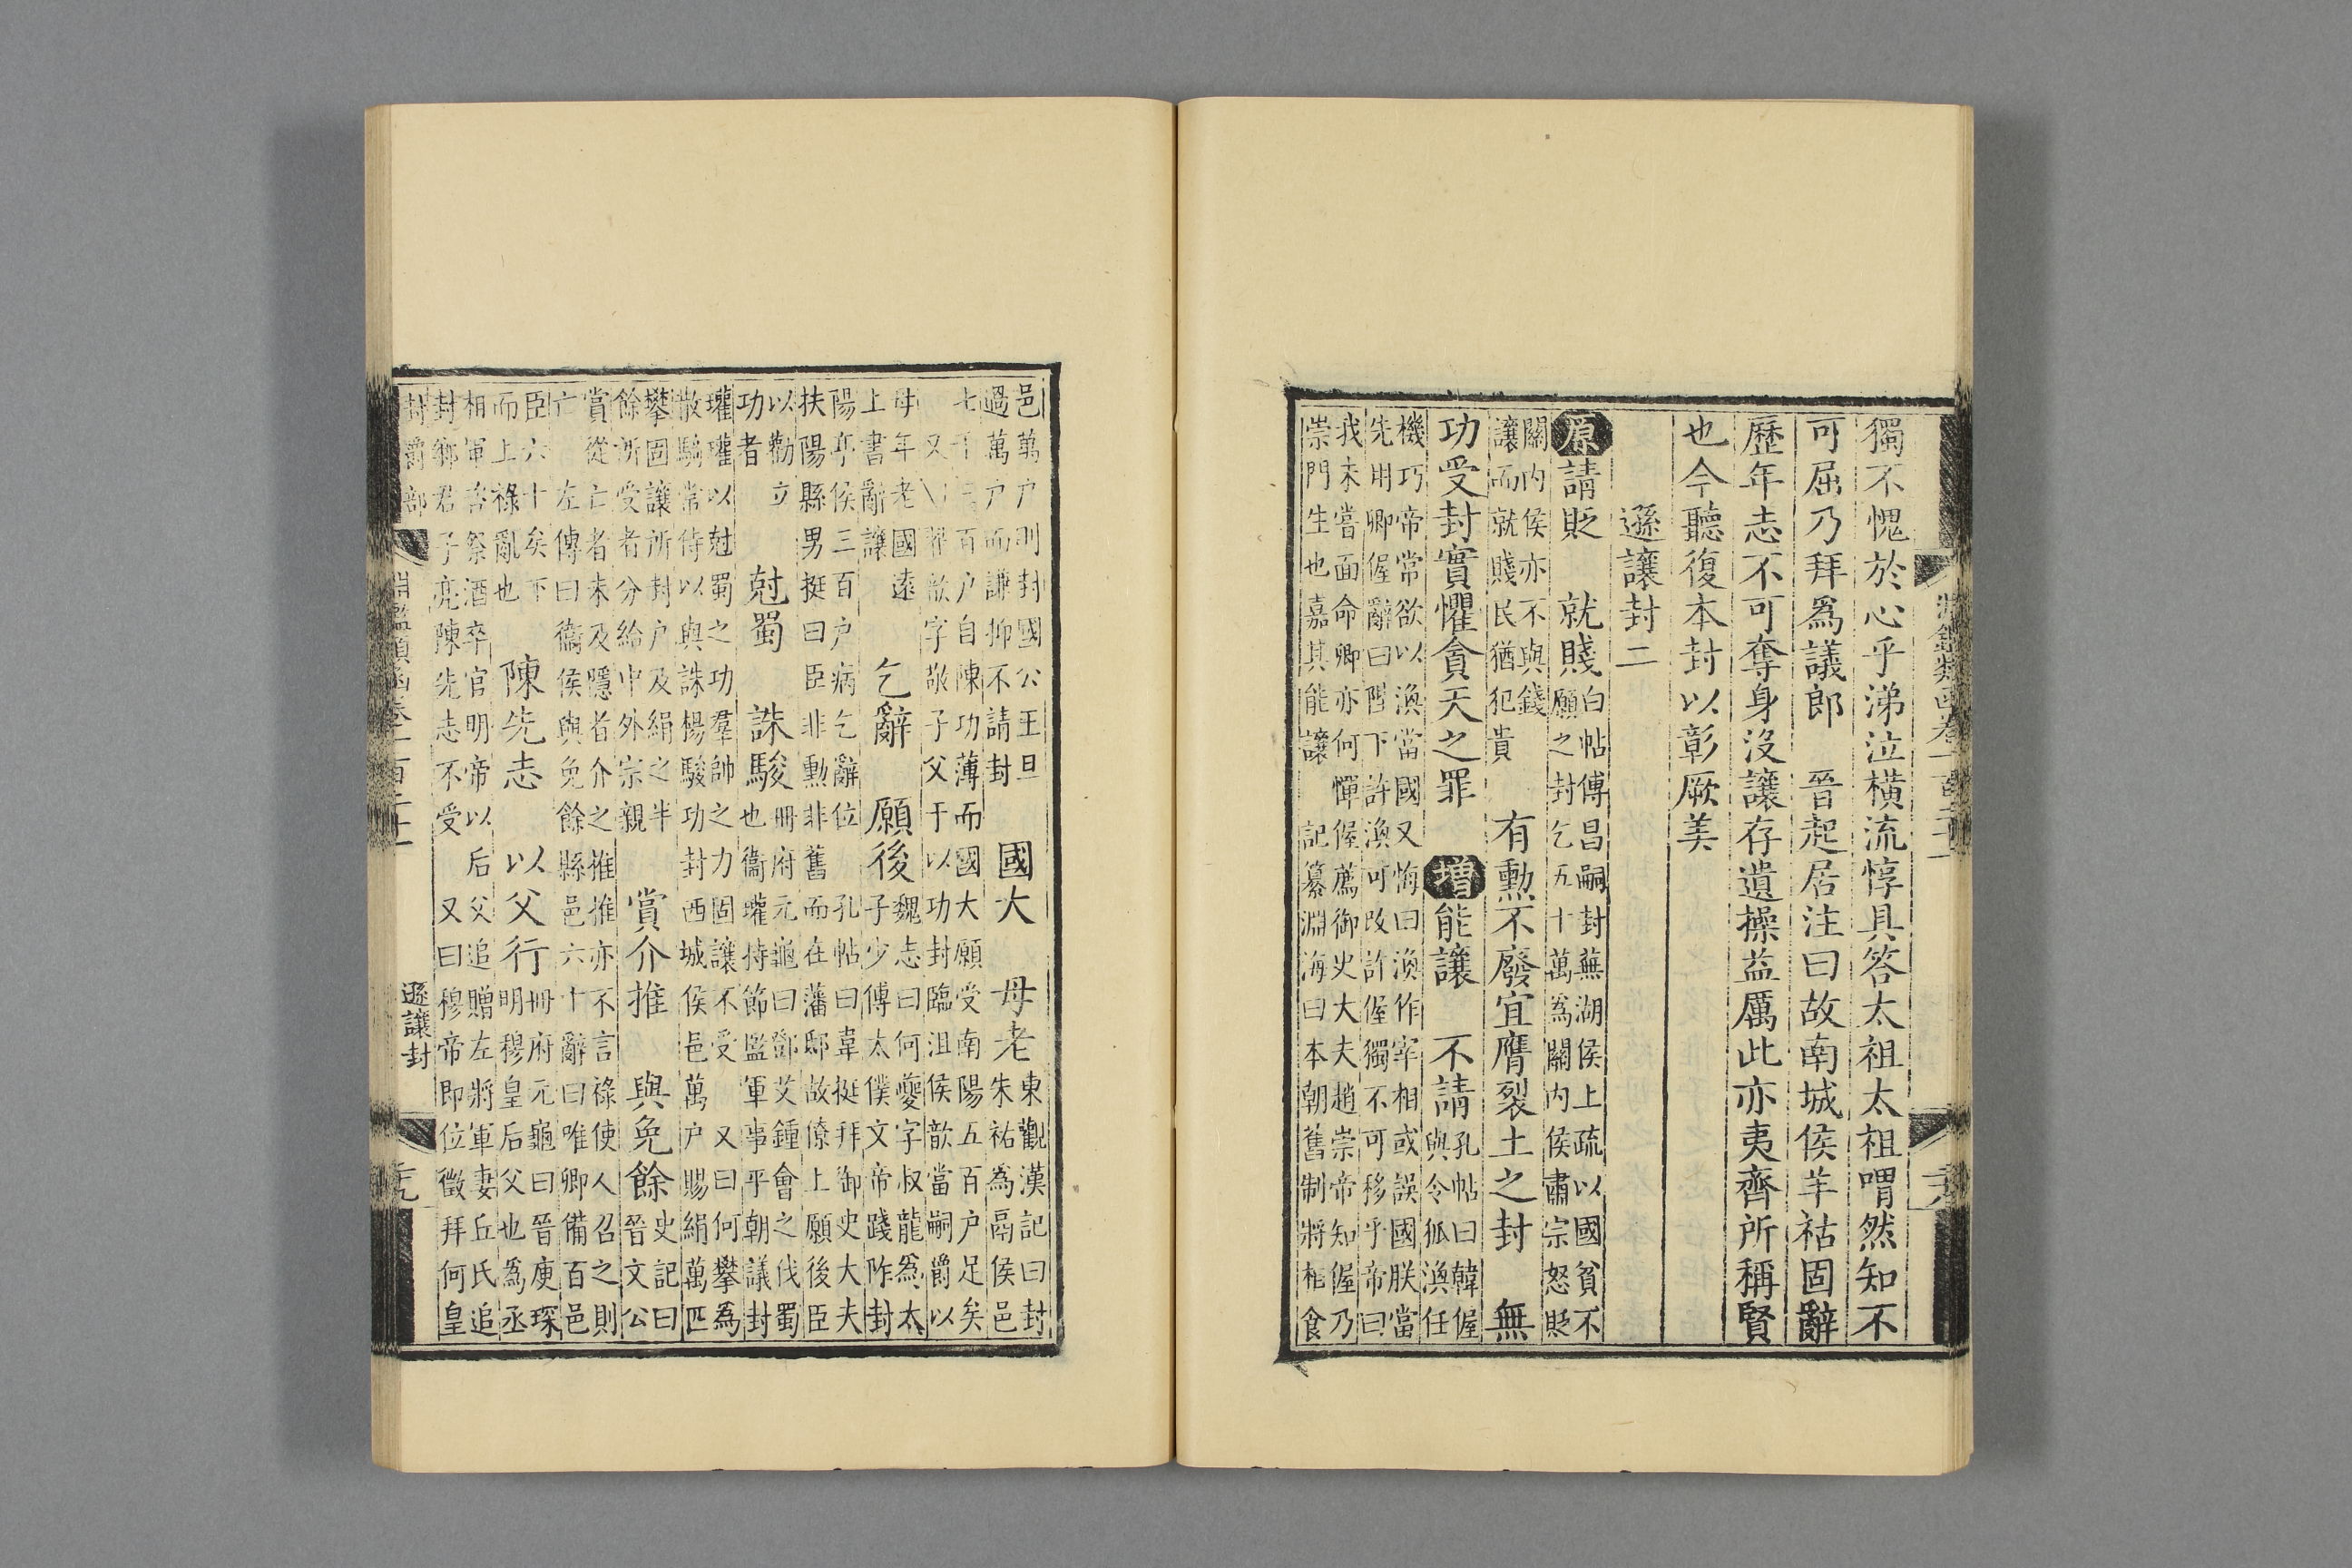 淵鑑類函卷一百二十一
獨不愧於心乎涕泣横流惇具答太祖太祖喟然知不
可屈乃拜爲議郎　晉起居注曰故南城侯羊祜固辭
歷年志不可奪身沒讓存遺操益厲此亦夷齊所稱賢
也今聽復本封以彰厥美
遜讓封二
原請貶　就賤
白帖傅昌嗣封蕪湖侯上疏以國貧不
願之封乞五十萬爲關内侯肅宗怒貶
關内侯亦不與錢
讓而就賤民猶犯貴
有勳不廢宜膺裂土之封　無
功受封實懼貪天之罪　增能讓　不請
孔帖曰韓偓
與令狐渙任
機巧帝常欲以渙當國又悔曰渙作宰相或誤國朕當
先用卿偓辭曰陛下許渙可改許偓獨不可移乎帝曰
我未嘗面命卿亦何憚偓薦御史大夫趙崇帝知偓乃
崇門生也嘉其能讓　記纂淵海曰本朝舊制將相食
邑萬户則封國公王旦
過萬户而謙抑不請封
國大　母老
東觀漢記曰封
朱祐爲鬲侯邑
七千三百户自陳功薄而國大願受南陽五百户足矣
又　耿歆字敬子父于以功封臨沮侯歆當嗣爵以
母年老國遠
上書辭讓
乞辭　願後
魏志曰何夔字叔龍爲太
子少傅太僕文帝踐阼封
陽亭侯三百户病乞辭位　孔帖曰韋挺拜御史大夫
扶陽縣男挺曰臣非勳非舊而在藩邸故僚上願後臣
以勸立
功者
尅蜀　誅駿
冊府元龜曰鄧艾鍾會之伐蜀
也衞瓘持節監軍事平朝議封
瓘瓘以尅蜀之功羣帥之力固讓不受　又曰何攀爲
散騎常侍以與誅楊駿功封西城侯邑萬户賜絹萬匹
攀固讓所封户及絹之半
餘所受者分給中外宗親
賞介推　與免餘
史記曰
晉文公
賞從亡者未及隱者介之推推亦不言祿使人召之則
亡　左傳曰衞侯與免餘縣邑六十辭曰唯卿備百邑
臣六十矣下
而上祿亂也
陳先志　以父行
冊府元龜曰晉庾琛
明穆皇后父也爲丞
相軍咨祭酒卒官明帝以后父追贈左將軍妻丘氏追
封鄉君子亮陳先志不受　又曰穆帝即位徵拜何皇
封爵部　淵鑑類函卷一百二十一　遜讓封